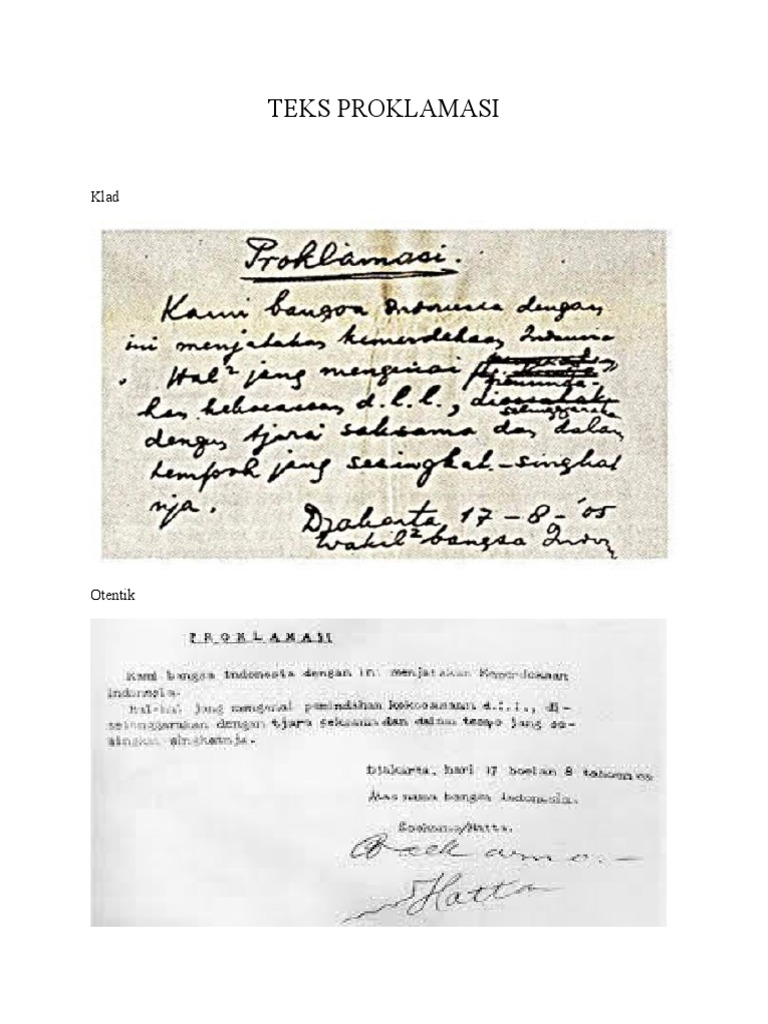 TEKS PROKLAMASI
Klad
Proklamasi.
Kami bangsa Indonesia dengan
ini menjatakan kemerdekaan Indonesia
. Hal² jang mengenai
pemindahan
kekoeasaan d.l.l., dioesahakan
diselenggarakan
dengan tjara saksama dan dalam
tempoh jang sesingkat-singkat
nja.
Djakarta, 17 - 8 - '05
Wakil² bangsa Indon
Otentik
PROKLAMASI
Kami bangsa Indonesia dengan ini menjatakan Kemerdekaan
Indonesia.
Hal-hal jang mengenai pemindahan kekoeasaan d.l.l., di-
selenggarakan dengan tjara seksama dan dalam tempo jang se-
singkat-singkatnja.
Djakarta, hari 17 boelan 8 tahoen 05
Atas nama bangsa Indonesia.
Soekarno/Hatta.
Soekarno.
Hatta